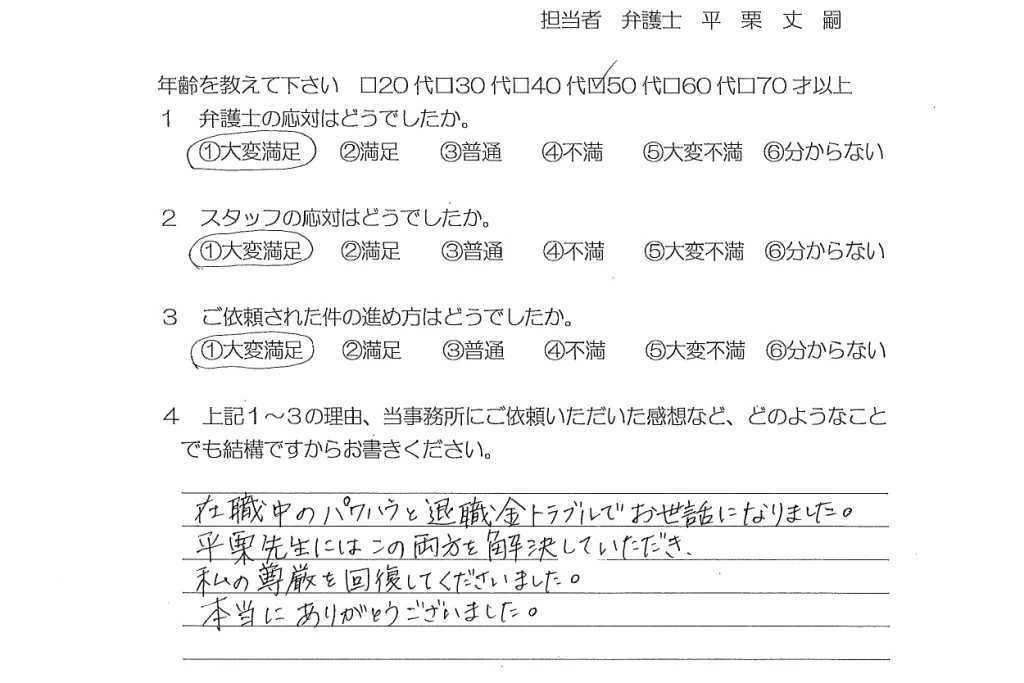 担当者　弁護士　平　栗　丈　嗣
年齢を教えて下さい　□20代□30代□40代☑50代□60代□70才以上
1　弁護士の応対はどうでしたか。
①大変満足　②満足　③普通　④不満　⑤大変不満　⑥分からない
2　スタッフの応対はどうでしたか。
①大変満足　②満足　③普通　④不満　⑤大変不満　⑥分からない
3　ご依頼された件の進め方はどうでしたか。
①大変満足　②満足　③普通　④不満　⑤大変不満　⑥分からない
4　上記1～3の理由、当事務所にご依頼いただいた感想など、どのようなこと
でも結構ですからお書きください。
在職中のパワハラと退職金トラブルでお世話になりました。
平栗先生にはこの両方を解決していただき、
私の尊厳を回復してくださいました。
本当にありがとうございました。